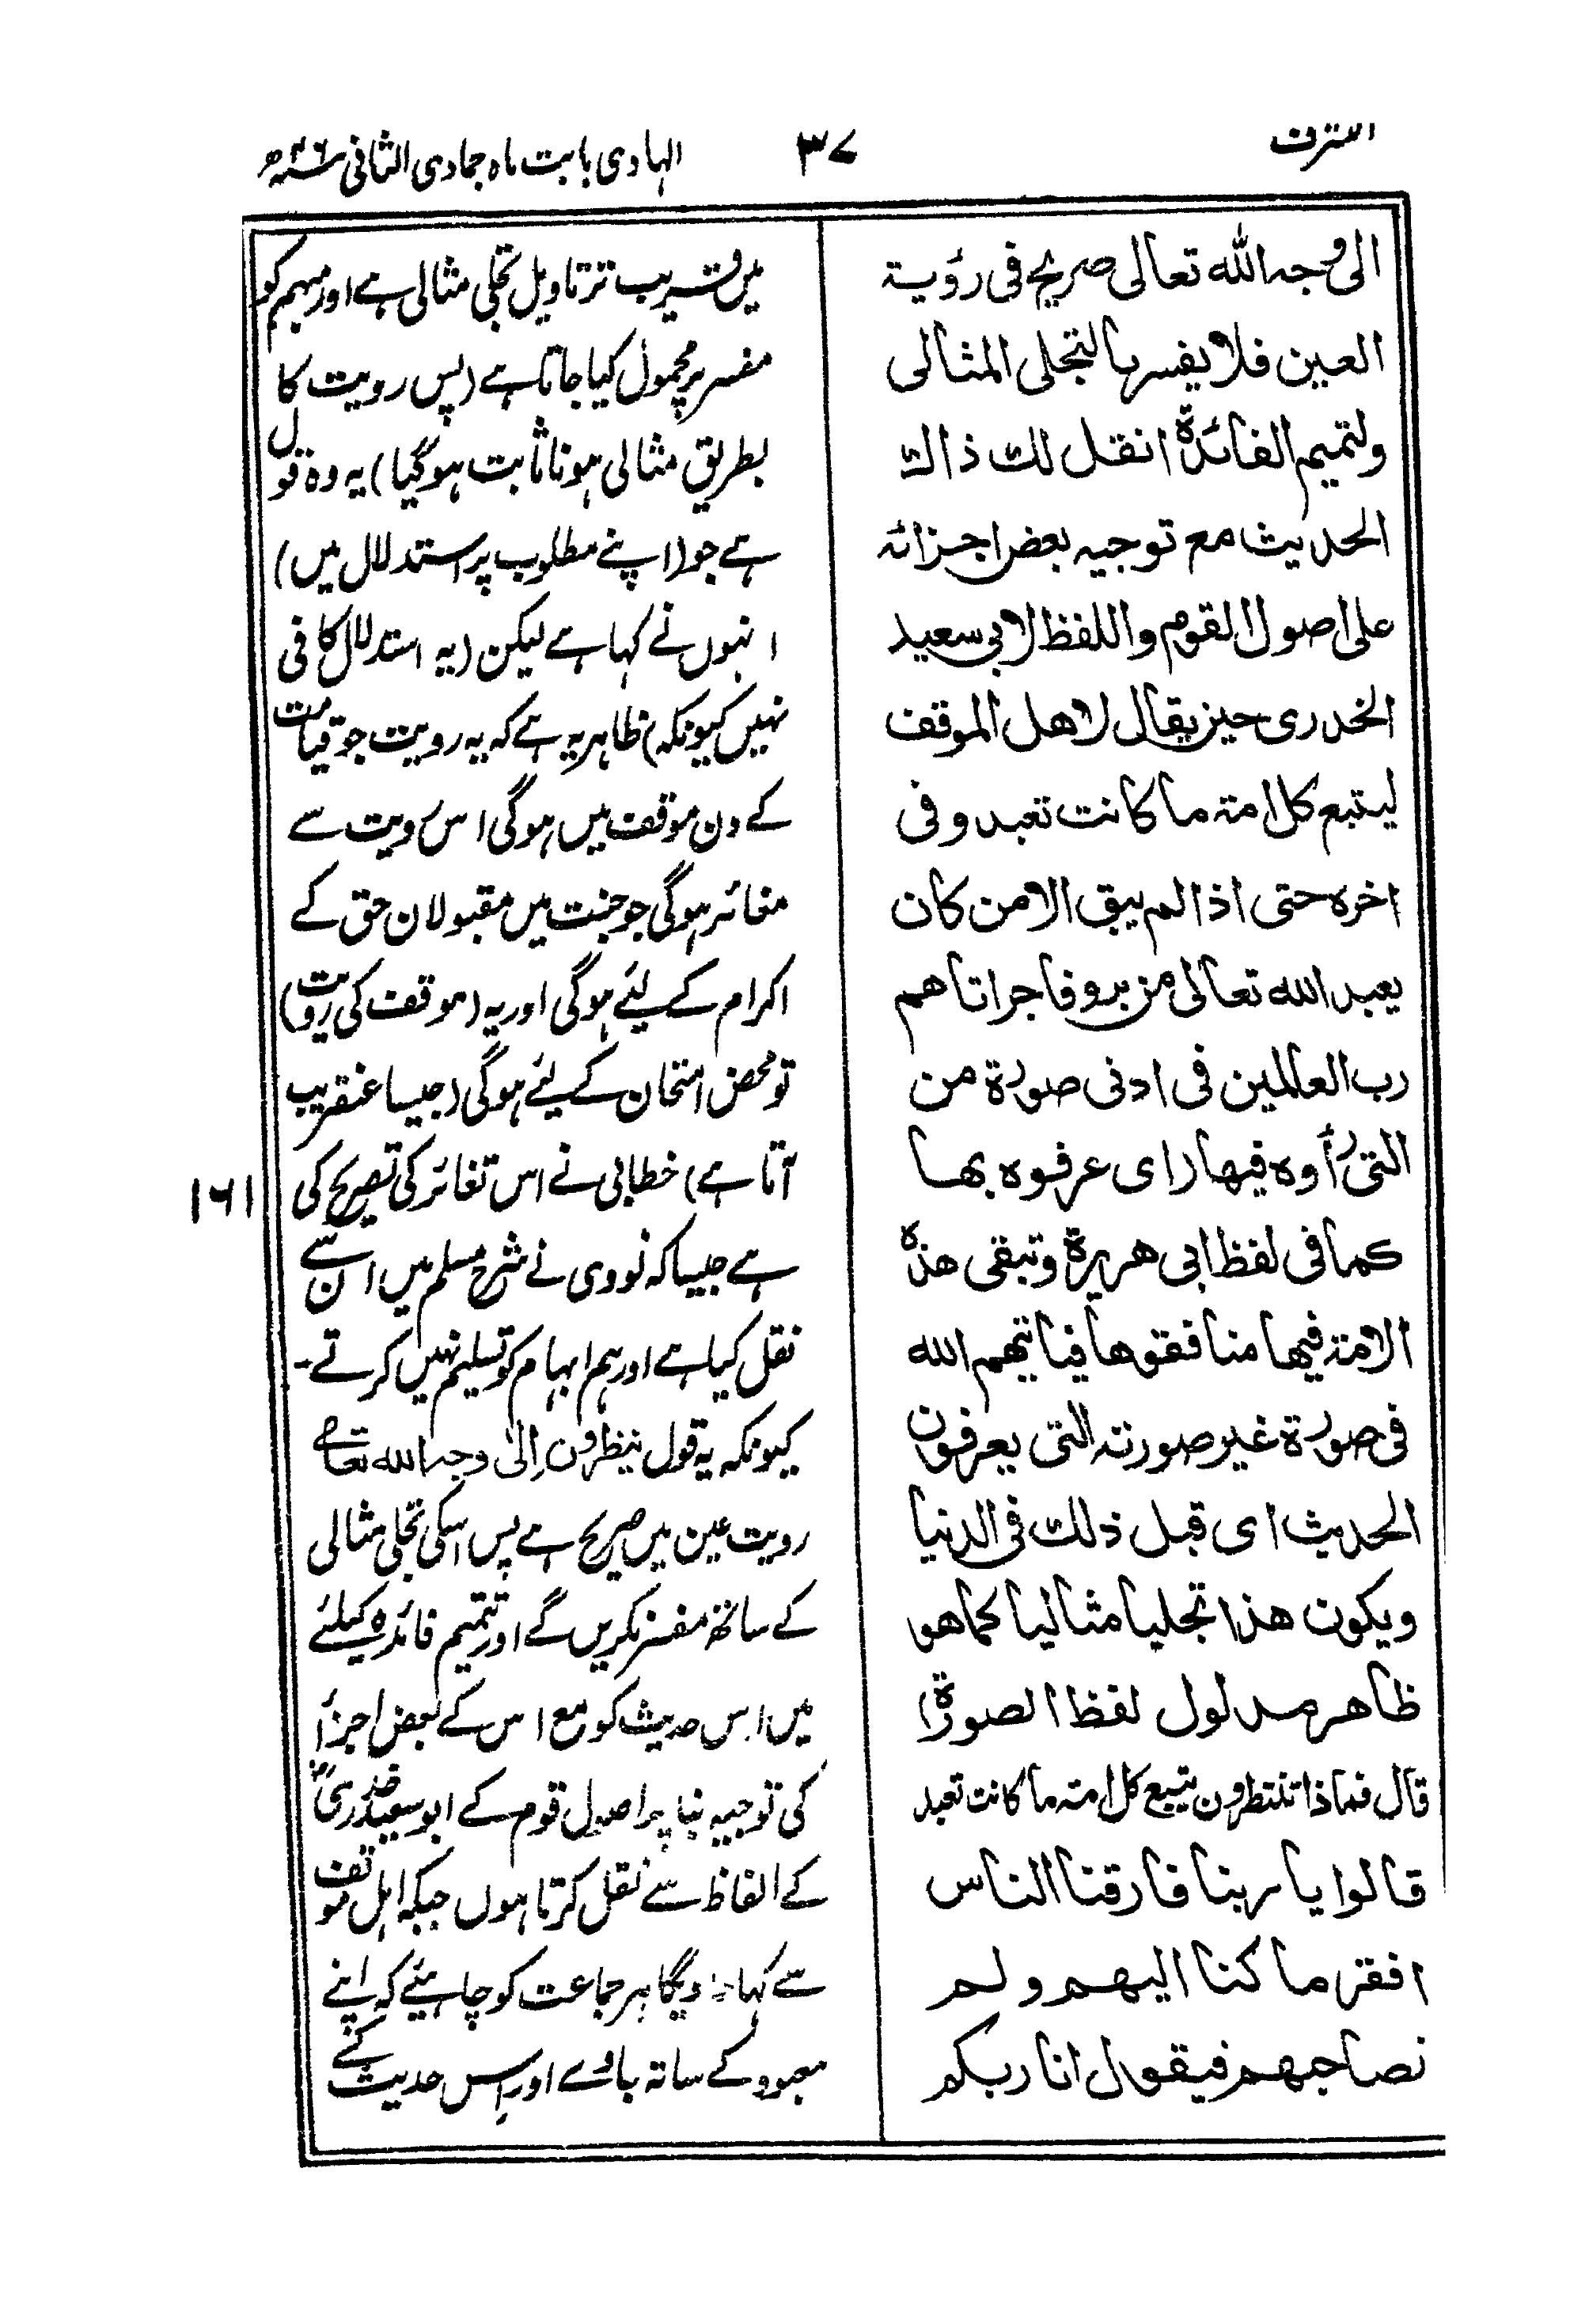 التشرف
۳۷
الہادی بابت ماہ جمادی الثانی ۴۶ھ
الی وجہ اللہ تعالی صریح فی رؤیۃ
العین فلا یفسر بالتجلی المثالی
ولتمیم الفائدۃ انقل لک ذالک
الحدیث مع توجیہ بعض اجزائہ
علی اصول القوم واللفظ لابی سعید
الخدری حین یقال لاھل الموقف
لیتبع کل امۃ ما کانت تعبد و فی
اخرہ حتی اذا لم یبق الا من کان
یعبد اللہ تعالی من برو فاجر اتاھم
رب العالمین فی ادنی صورۃ من
التی رأوہ فیھا رای عرفوہ بھا
کما فی لفظ ابی ھریرۃ وتبقی ھذہ
الامۃ فیھا منافقوھا فیاتیھم اللہ
فی صورۃ غیر صورتہ التی یعرفون
الحدیث ای قبل ذلک فی الدنیا
ویکون ھذا تجلیا مثالیا کما ھو
ظاھر مدلول لفظ الصورۃ)
قال فماذا تنتظرون یتبع کل امۃ ما کانت تعبد
قالوا یا ربنا فارقنا الناس
افقر ما کنا الیھم و لم
نصاحبھم فیقول انا ربکم
میں قریب تر تاویل تجلی مثالی ہے اور مبہم کو
مفسر پر محمول کیا جاتا ہے (پس رویت کا
بطریق مثالی ہونا ثابت ہوگیا) یہ وہ قول
ہے جو (اپنے مطلوب پر استدلال میں)
انہوں نے کہا ہے لیکن (یہ استدلال کافی
نہیں کیونکہ) ظاہر یہ ہے کہ یہ رویت جو قیامت
کے دن موقف میں ہوگی اس رویت سے
مغائر ہوگی جو جنت میں مقبولان حق کے
اکرام کے لیئے ہوگی اور یہ (موقف کی رویت)
تو محض امتحان کے لیئے ہوگی (جیسا عنقریب
آتا ہے) خطابی نے اس تغائر کی تصریح کی
۱۶۱
ہے جیسا کہ نووی نے شرح مسلم میں ان سے
نقل کیا ہے اور ہم ابہام کو تسلیم نہیں کرتے۔
کیونکہ یہ قول ینظرون اِلیٰ وجہ اللہ تعالے
رویت عین میں صریح ہے پس اسکی تجلی مثالی
کے ساتھ مفسر نکریں گے اور تتمیم فائدہ کیلئے
میں اس حدیث کو مع اس کے بعض اجزأ
کی توجیہ بنا بر اصول قوم کے ابوسعید خدریؓ
کے الفاظ سے نقل کرتا ہوں جبکہ اہل موقف
سے کہا دیگا ہر جماعت کو چاہیئے کہ اپنے
معبود کے ساتہ جاوے اور اس حدیث کے